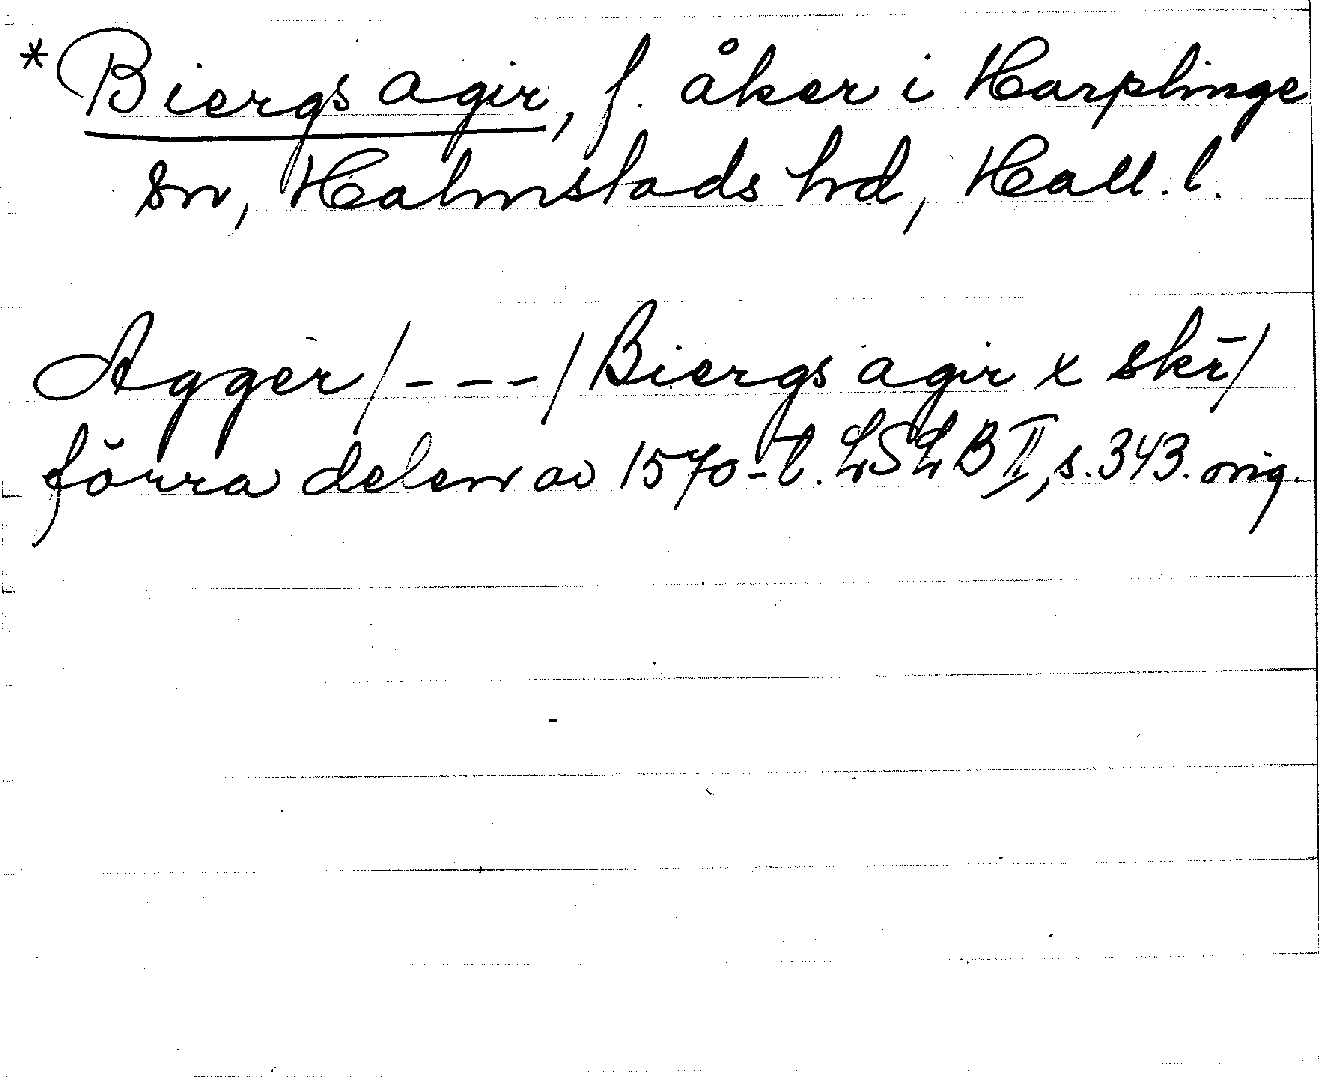 *Biergs agir, f. åker i Harplinge
sn, Halmstads hd, Hall. l.
Aggèr /---/ Biergs agir x skĩ/
förra delen av 1570-t. LSLB II, s. 343. orig.